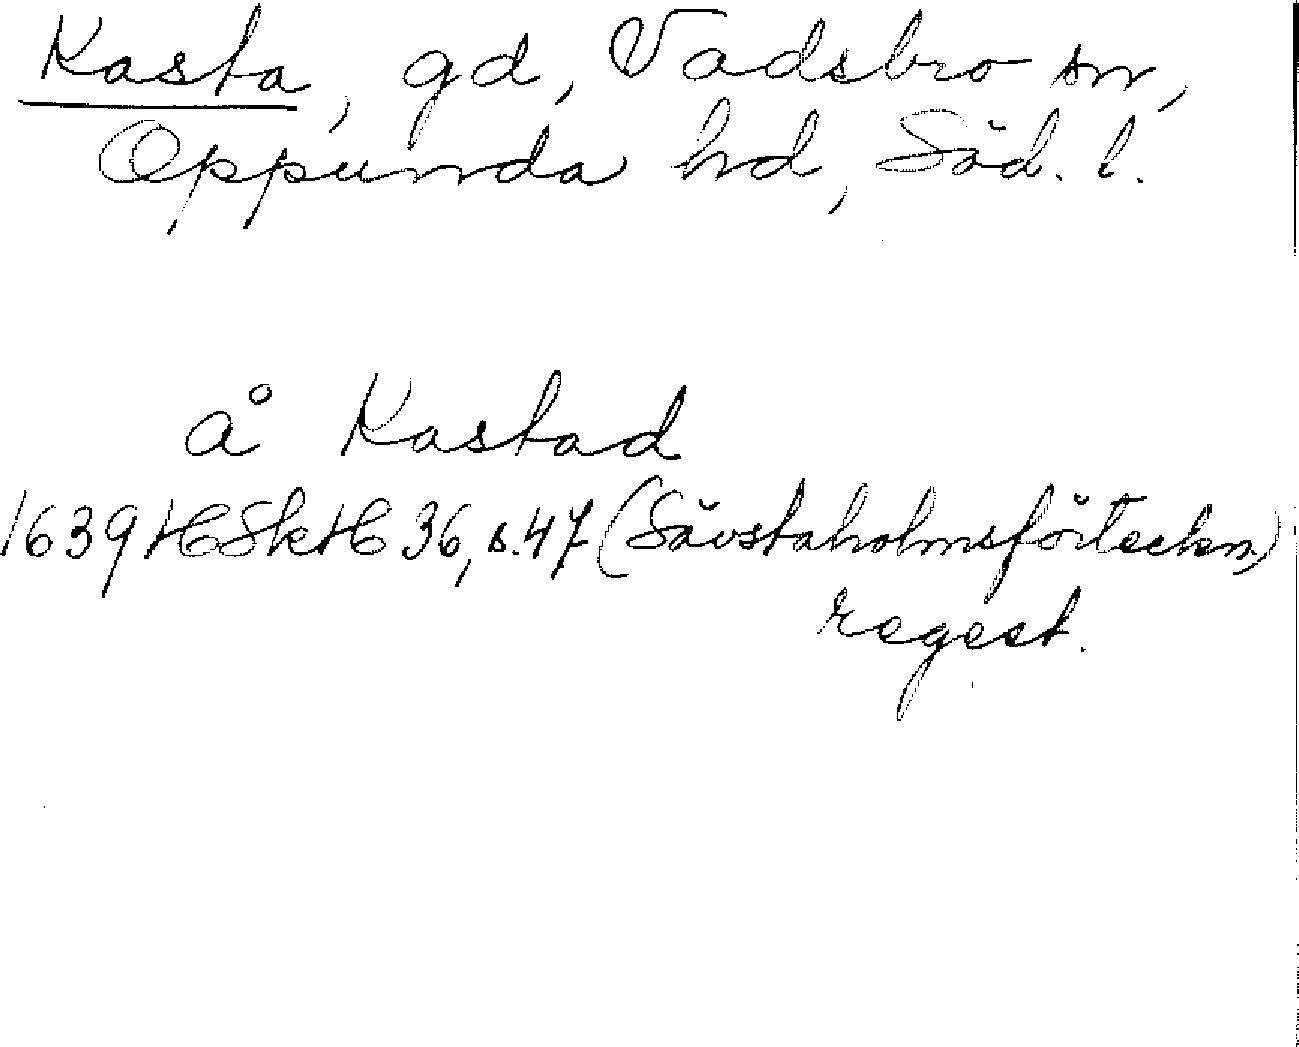 Kasta, gd, Vadsbro sn,
Oppunda hd, Söd. l.
å Kastad
1639 HSkH 36, s. 47 (Sävstaholmsförteckn.)
regest.